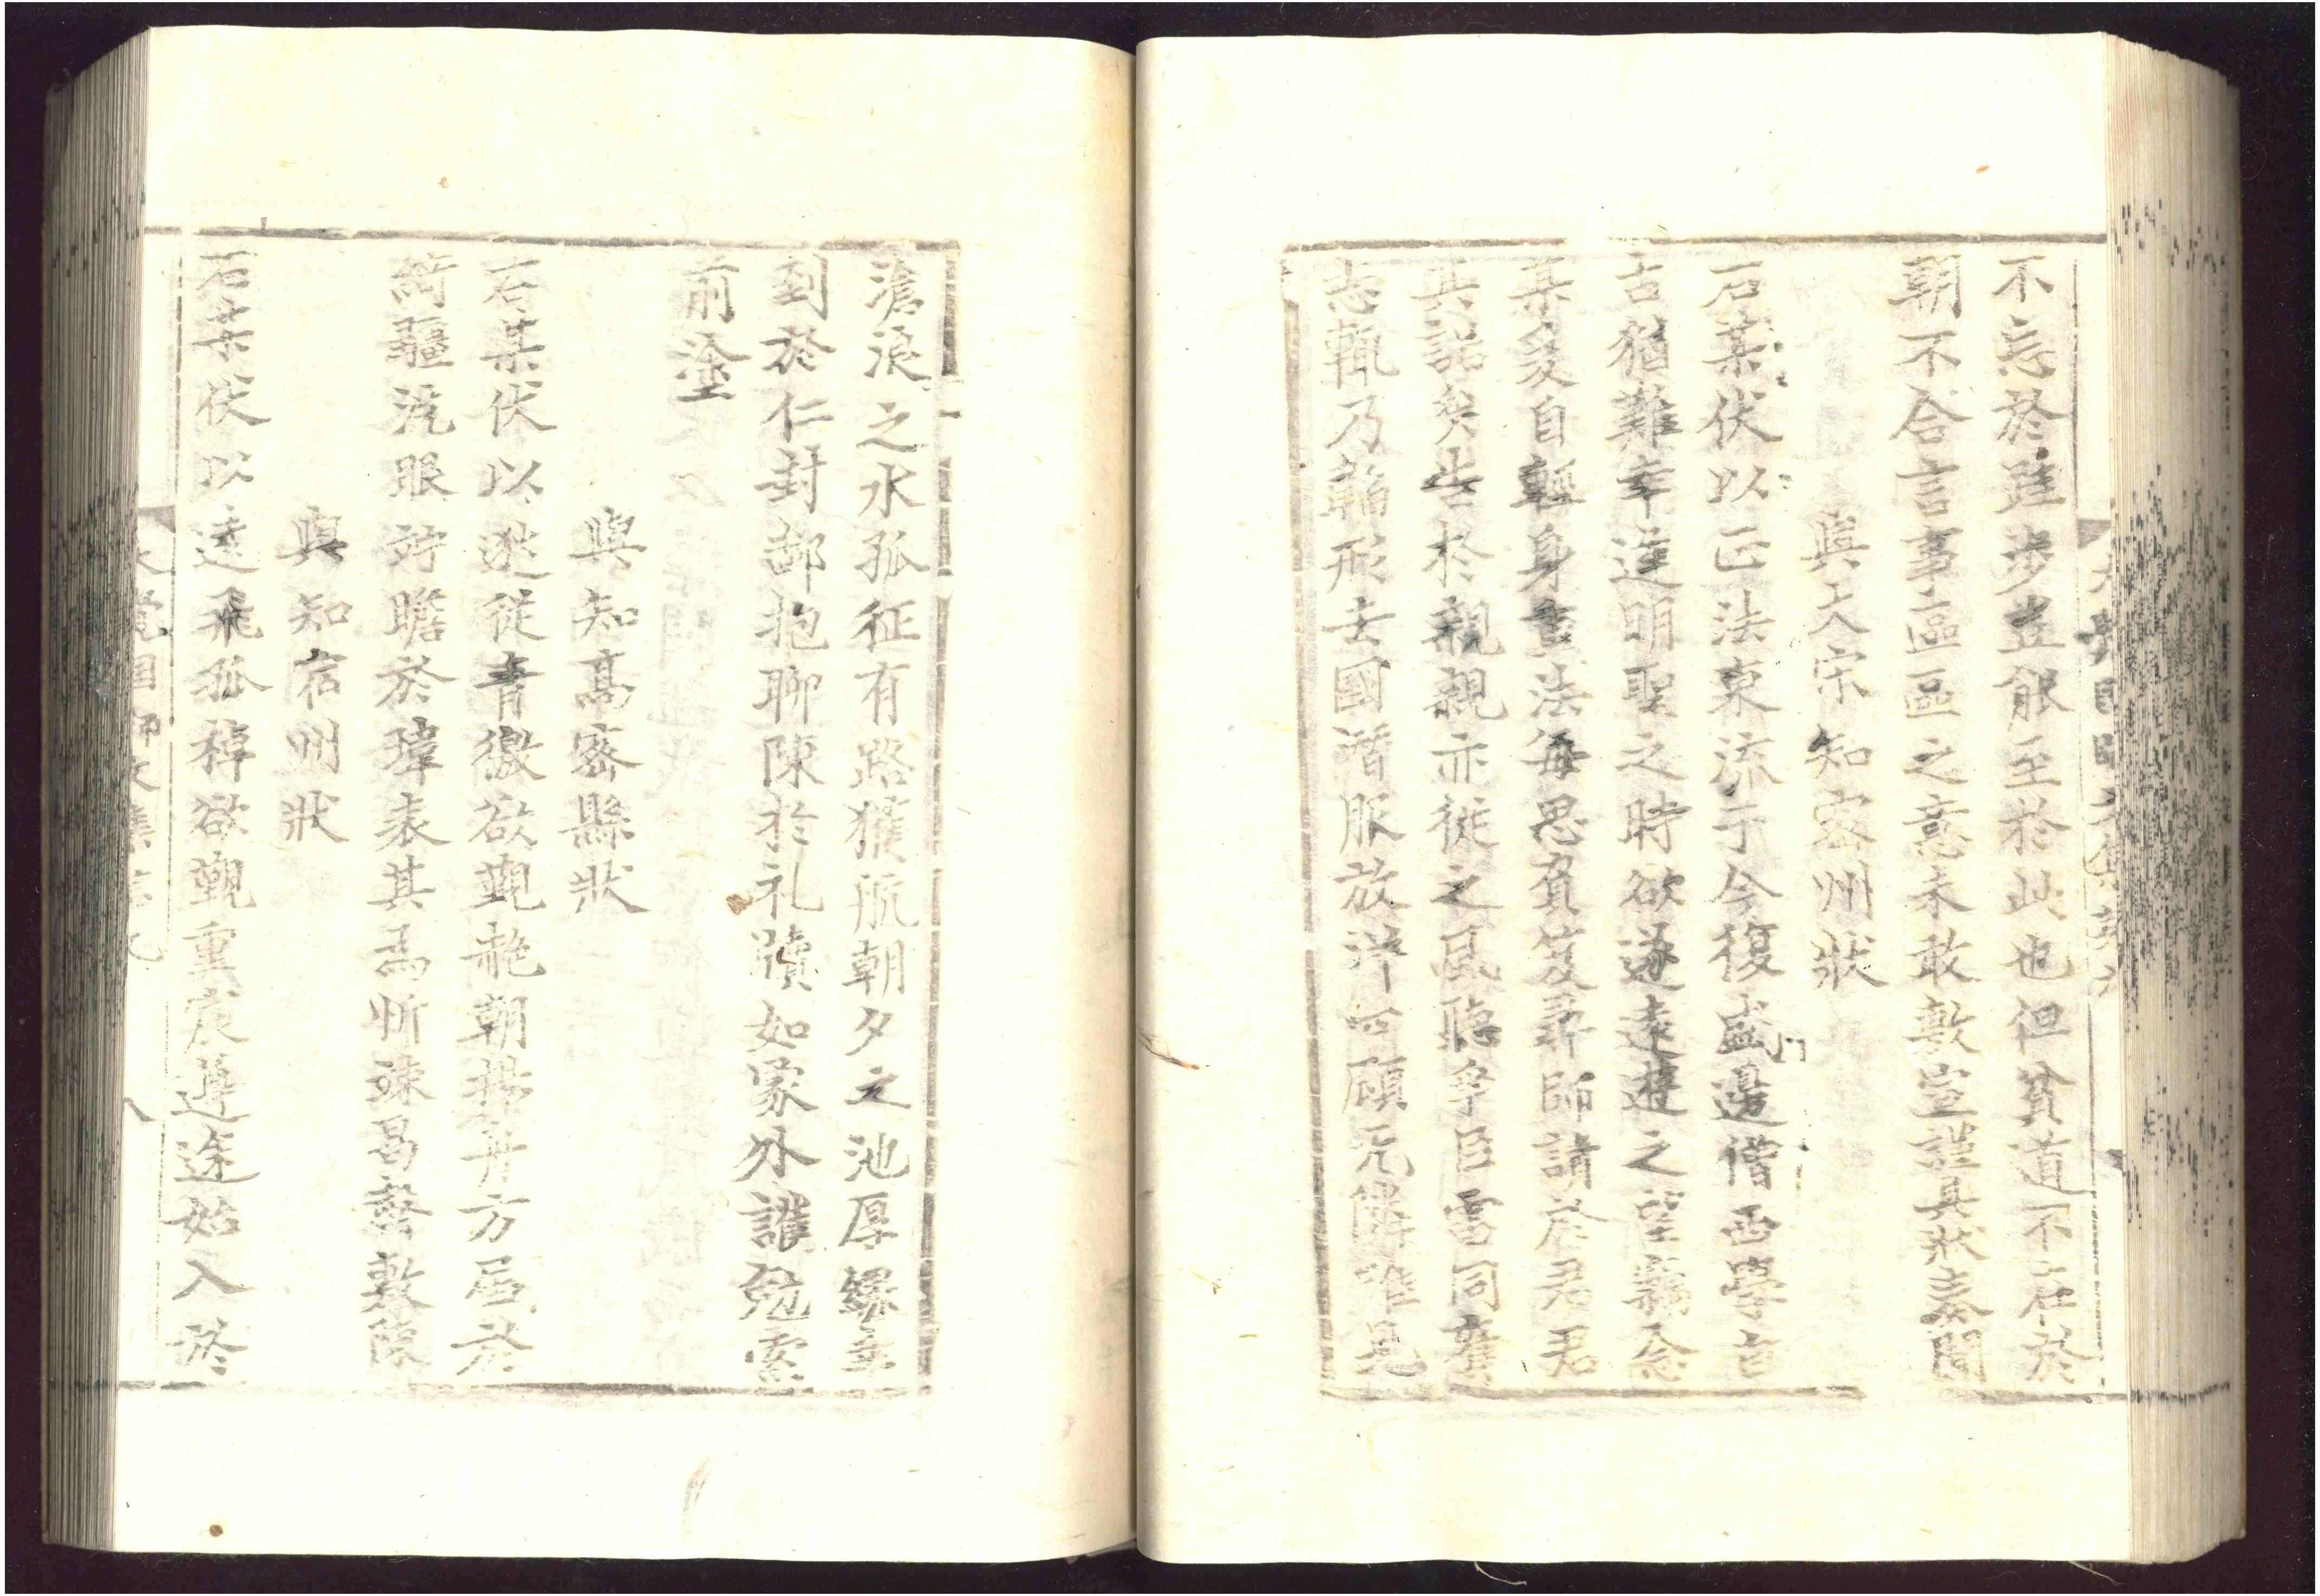 不忘於跬步豈能至於此也但貧道不在於
朝不合言事區區之意未敢敷宣謹具狀奏聞
與大宋知密州狀
右某伏以正法東流于今復盛邊僧西學自
古猶難幸逢明聖之時欲遂遠遊之望竊念
某爰自輕身重法每思負笈尋師請於君君
其詔矣告於親親亦從之風聽爭臣雷同
志輒乃韜形去國潛服放洋
滄浪之水孤征有路獲航朝夕之池厚緣
到於仁封部抱聊陳於札牘如蒙外護勉索
前塗
與知高密縣狀
右某伏以逖從青徼欲覲龍朝揚舲方屆於
疆決眼詩瞻於瑋表其爲忻竦曷罄敷陳
與知宿州狀
右某伏以遠飛孤棹欲覲重宸遵途始入於
大覺國師文集
八